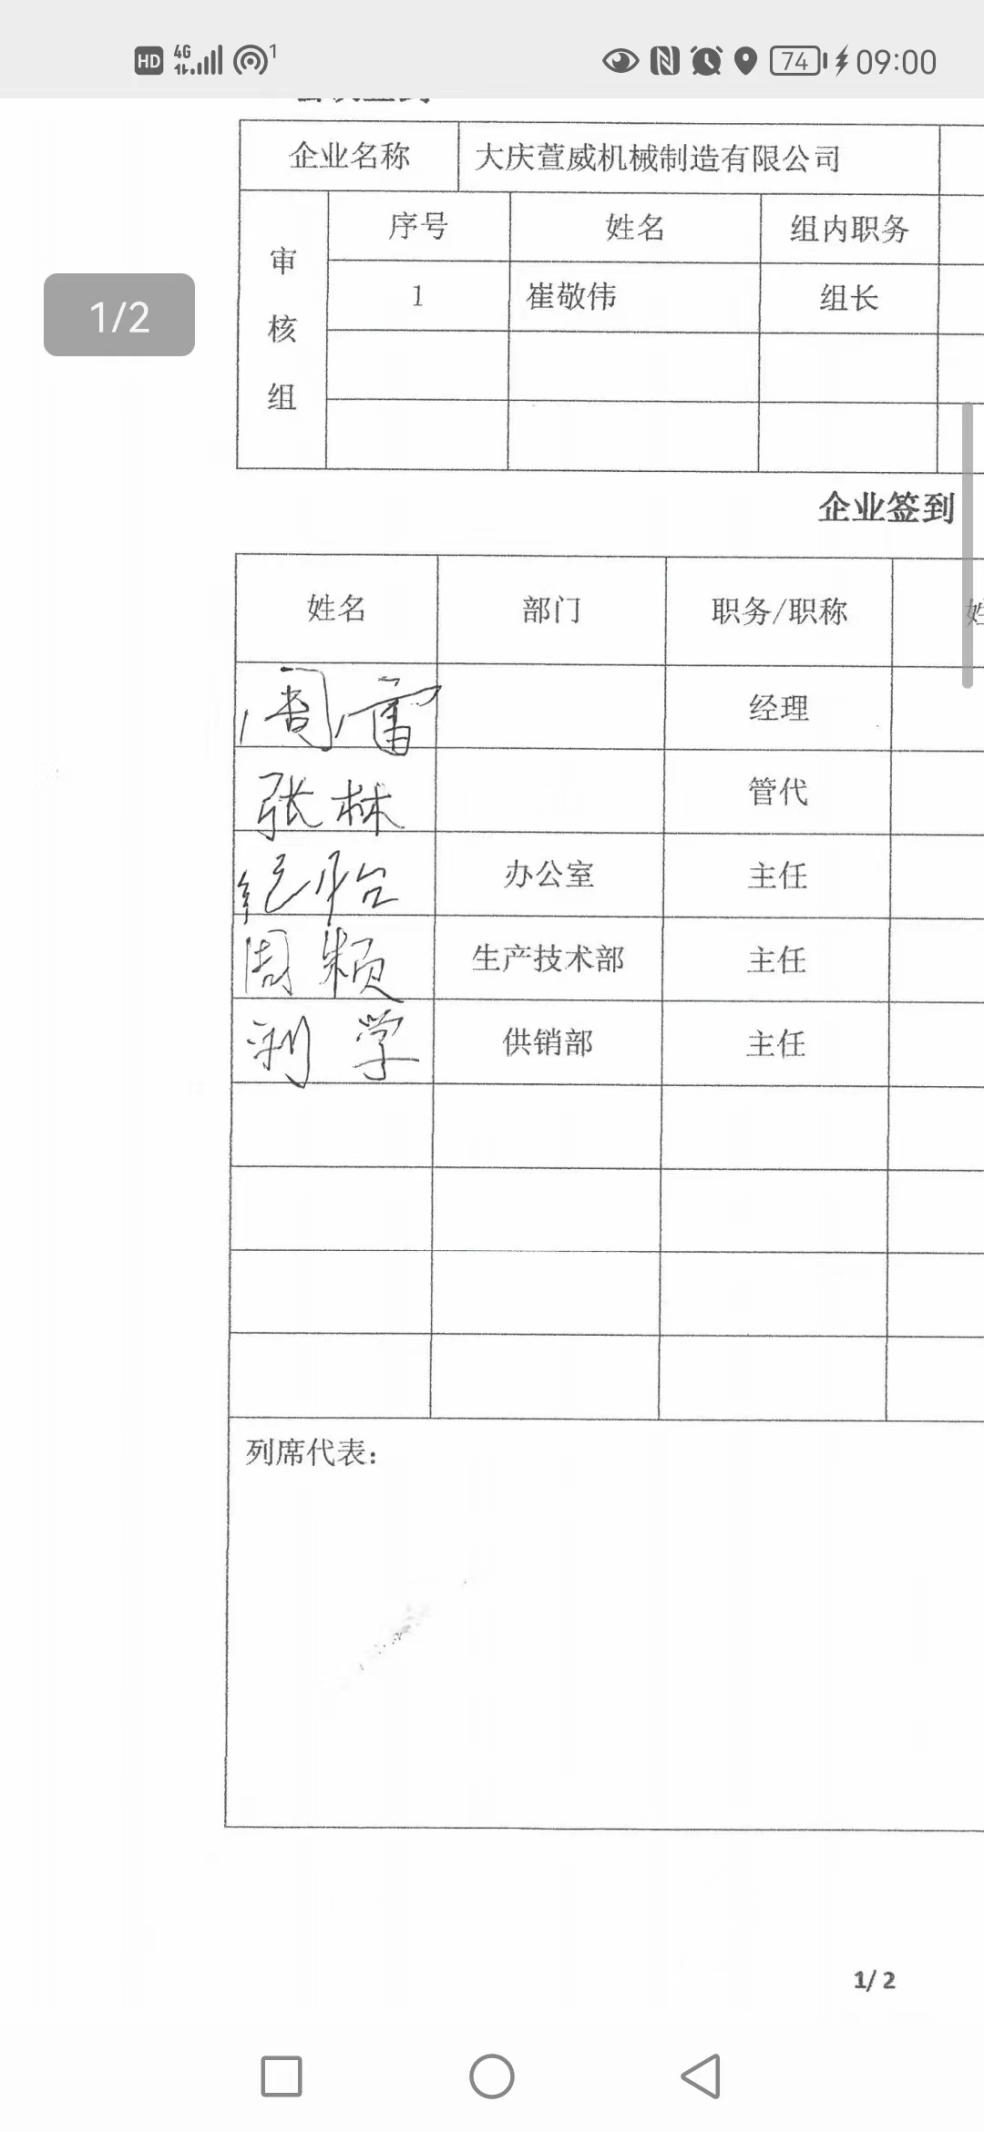 HD 4G 1 74 09:00
企业名称 大庆萱威机械制造有限公司
审核组 序号 姓名 组内职务
1 崔敬伟 组长
1/2
企业签到
姓名 部门 职务/职称
周雷 经理
张林 管代
纪 办公室 主任
周颖 生产技术部 主任
刘学 供销部 主任
列席代表：
1/ 2